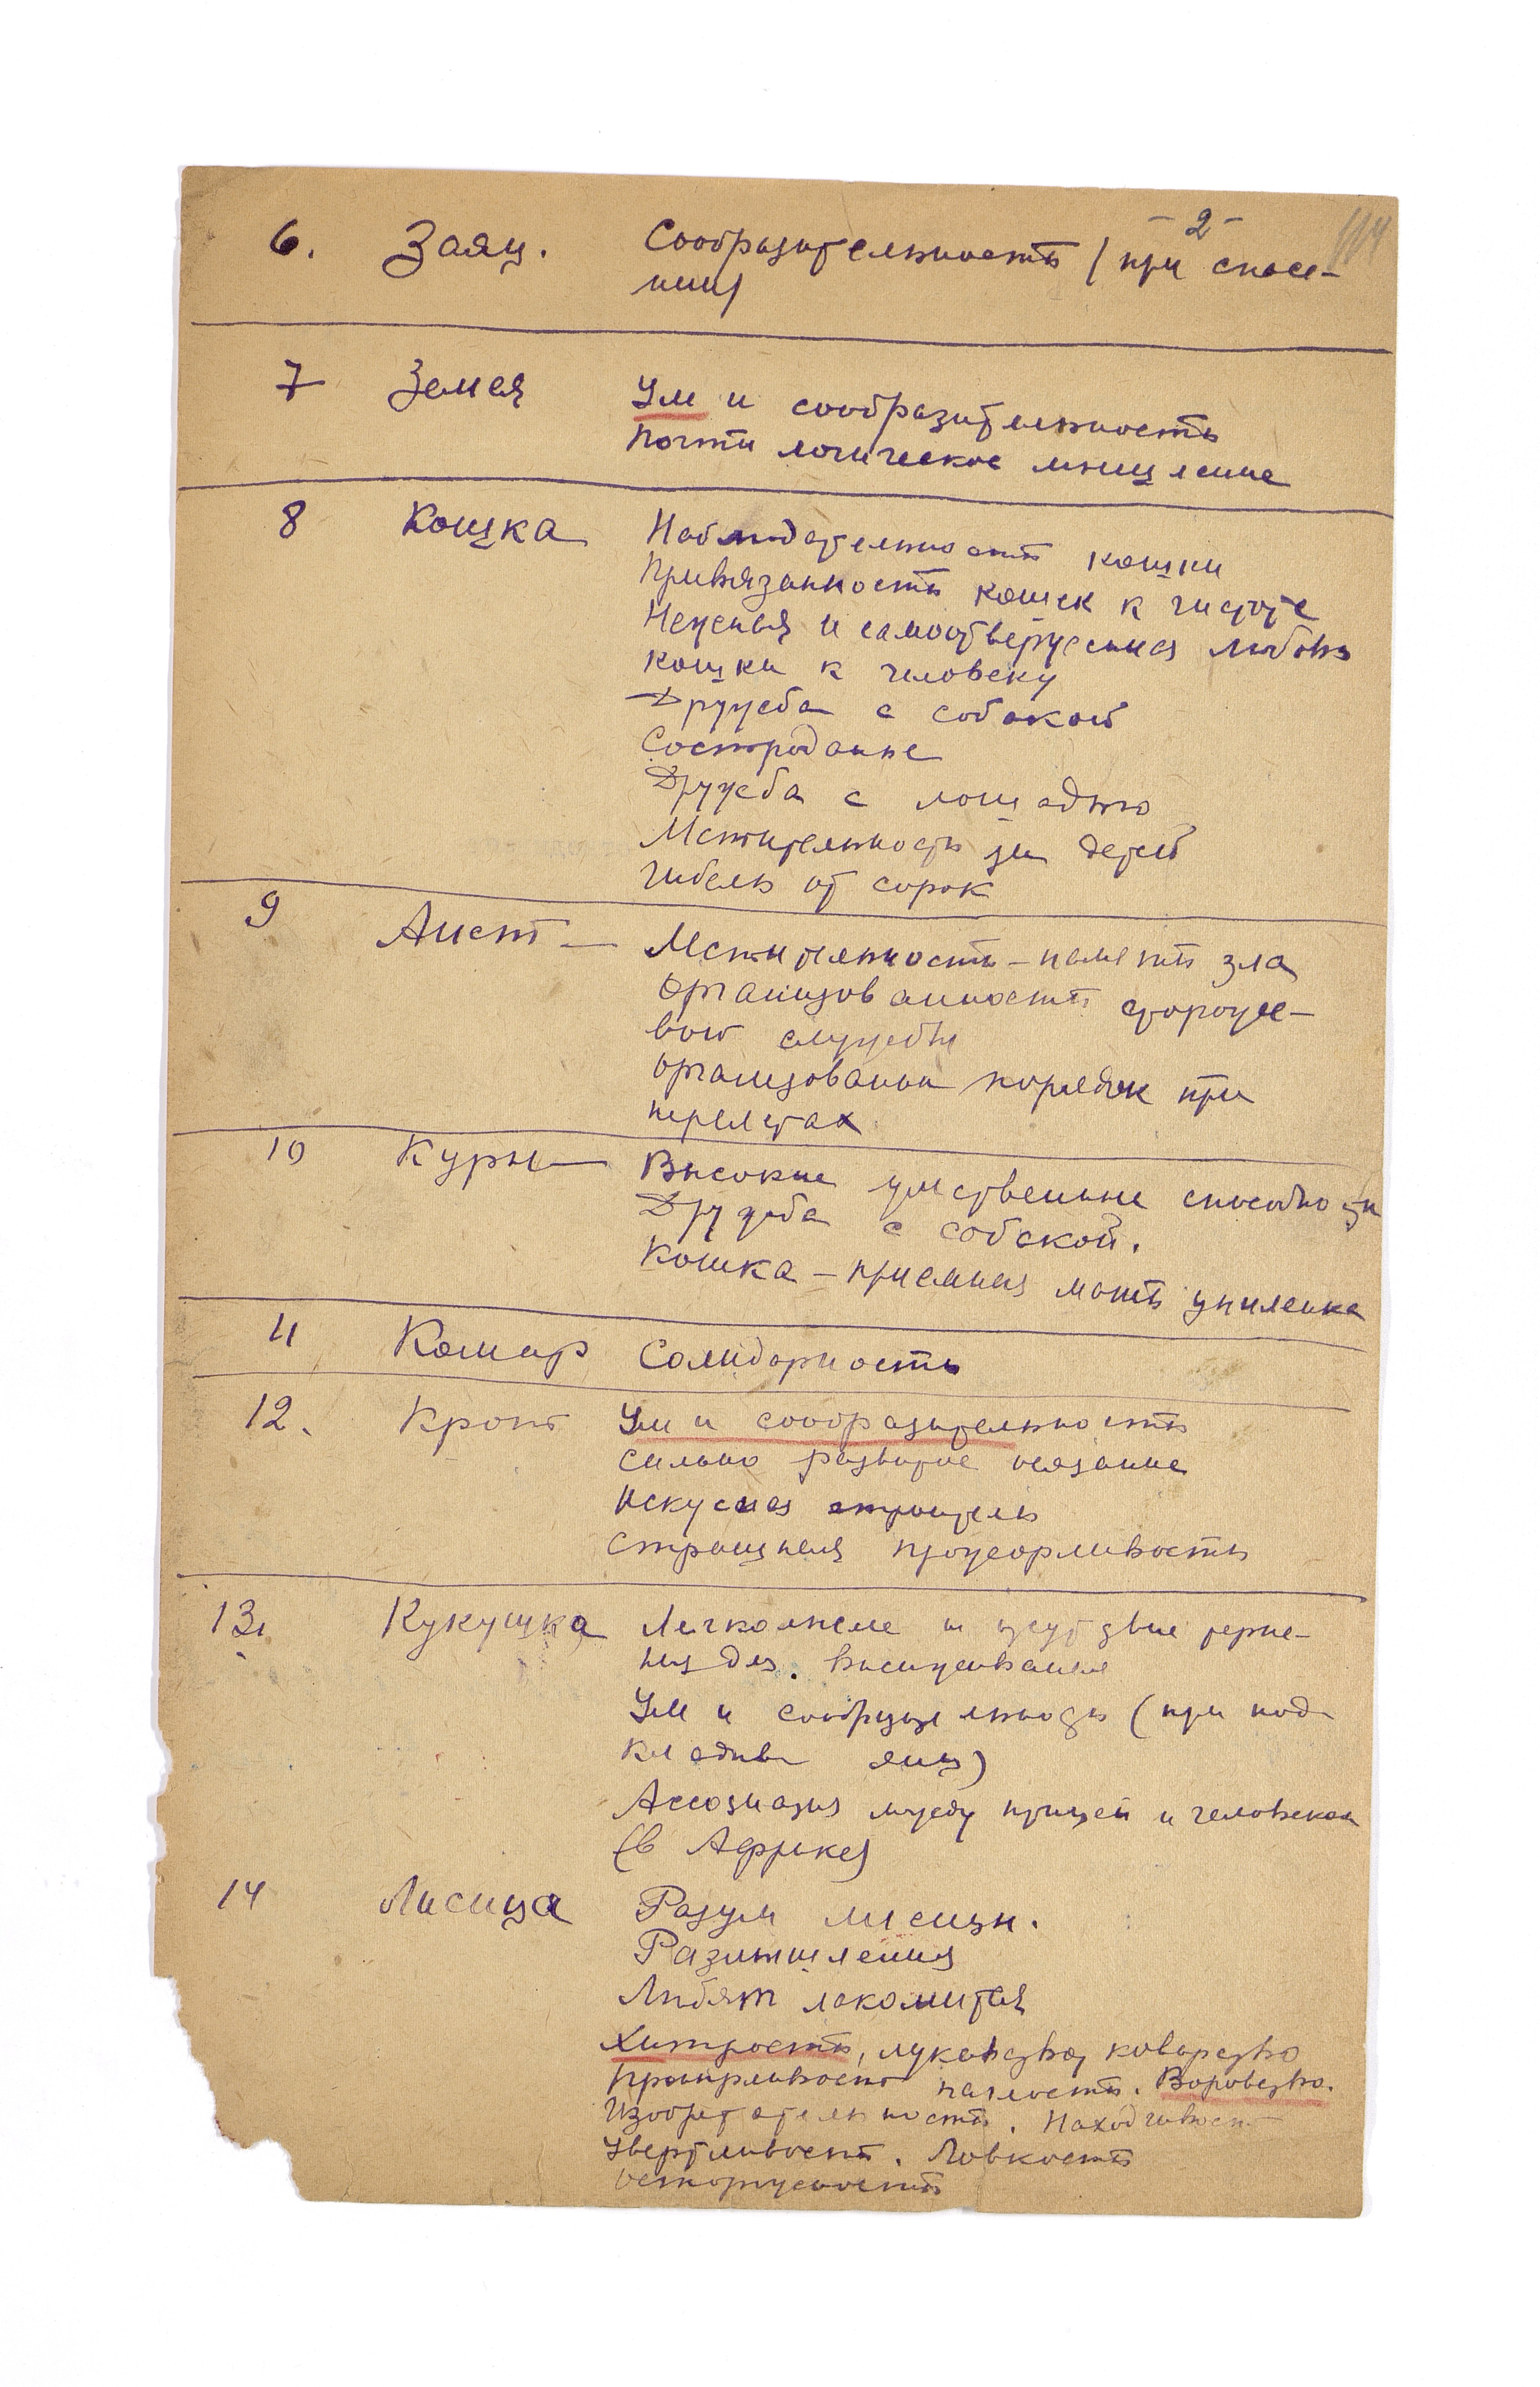 - 2 -
114
6. Заяц. Сообразительность (при спасе-
нии)
7 Земея Ум и сообразительность
Почти логическое мышление
8 Кошка Наблюдательность кошки
Привязанность кошек к чистоте
Нежная и самоотверженная любовь
кошки к человеку
Дружба с собакой
Сострадание
Дружба с лошадью
Мстительность за детей
Гибель от сорок
9 Аист — Мстительность - память зла
Организованность стороже-
вой службы
Организованный порядок при
перелетах
10 Куры — Высокие умственные способности
Дружба с собакой.
Кошка - приемная мать цыпленка
11 Комар Солидарность
12. Крот Ум и сообразительность
Сильно развитое осязание
Искусный строитель
Страшная прожорливость
13. Кукушка Легкомыслие и отсутствие терпе-
ния для высиживания
Ум и сообразительность (при под-
кладыв яиц)
Ассоциация между птицей и человеком
(в Африке)
14 Лисица Разум лисицы.
Размышления
Любят лакомиться
Хитрость, лукавство, коварство
Пронырливость наглость. Воровство.
Изобретательность. Находчивость
Увертливость. Ловкость
Осторожность